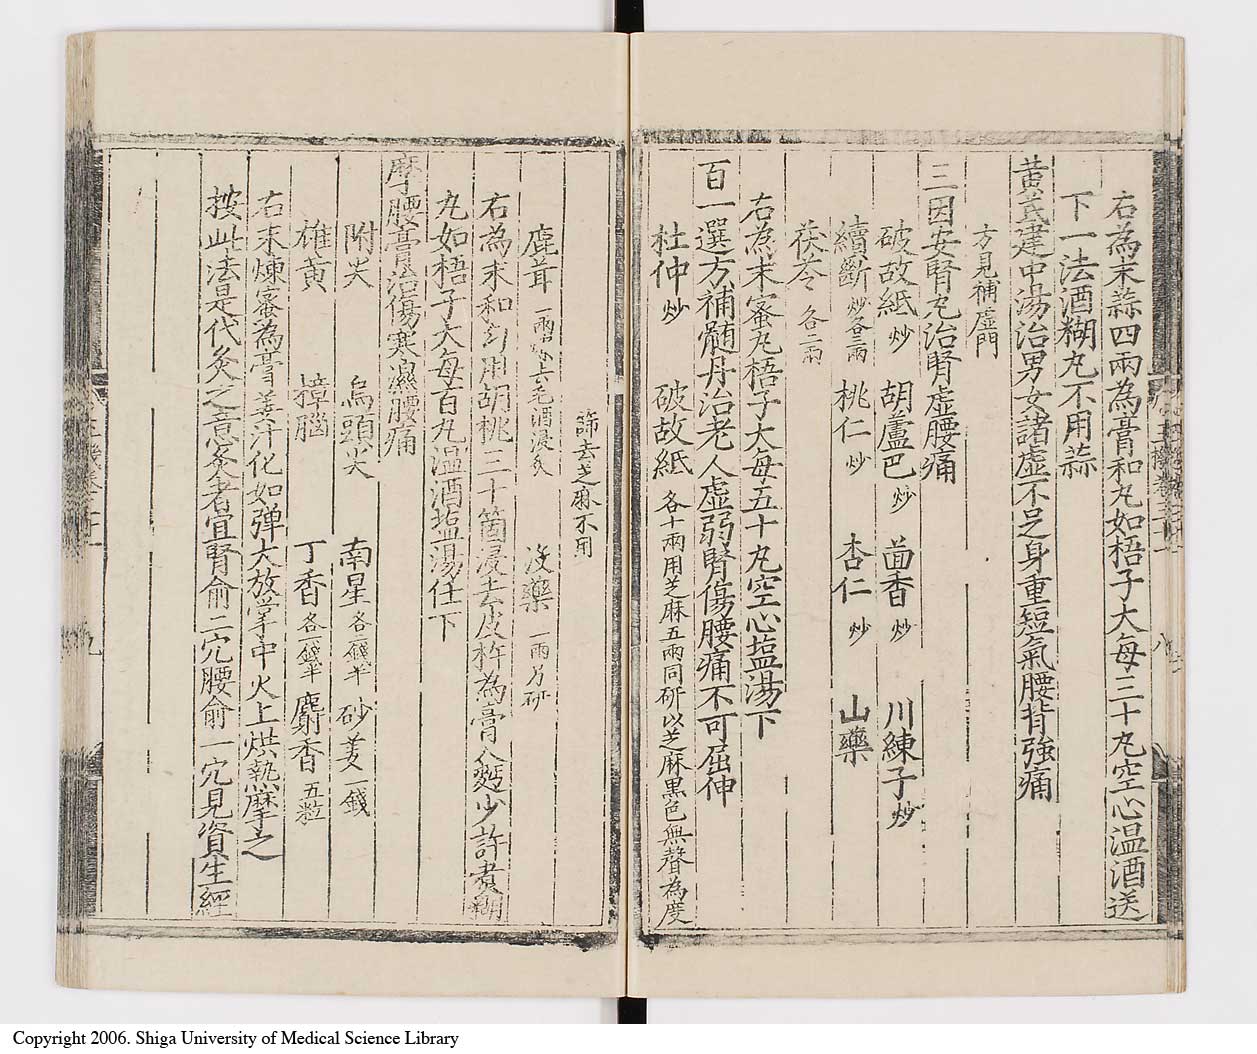 右為末蒜四兩為膏和丸如梧子大每三十丸空心温酒送
下一法酒糊丸不用蒜
黄芪建中湯治男女諸虛不足身重短氣腰背強痛
方見補虛門
三因安腎丸治腎虛腰痛
破故紙炒 胡蘆巴炒 茴香炒 川練子炒
續斷炒各三兩 桃仁炒 杏仁炒 山藥
茯苓各二兩
右為末蜜丸梧子大每五十丸空心塩湯下
百一選方補髄丹治老人虛弱腎傷腰痛不可屈伸
杜仲炒 破故紙各十兩用芝麻五兩同研以芝麻黒色無聲為度
篩去芝麻不用
鹿茸 没藥一兩另研
右為末和勻用胡桃三十箇浸去皮杵為膏入麪少許煮糊
丸如梧子大每百丸温酒塩湯任下
摩腰膏治傷寒濕腰痛
附尖 烏頭尖 南星各二錢半 砂姜一錢
雄黄 樟腦 丁香各一錢半 麝香五粒
右末煉蜜為膏姜汁化如弹大放掌中火上烘熱摩之
按此法是代灸之意灸者宜腎俞二穴腰俞一穴見資生經
Copyright 2006. Shiga University of Medical Science Library